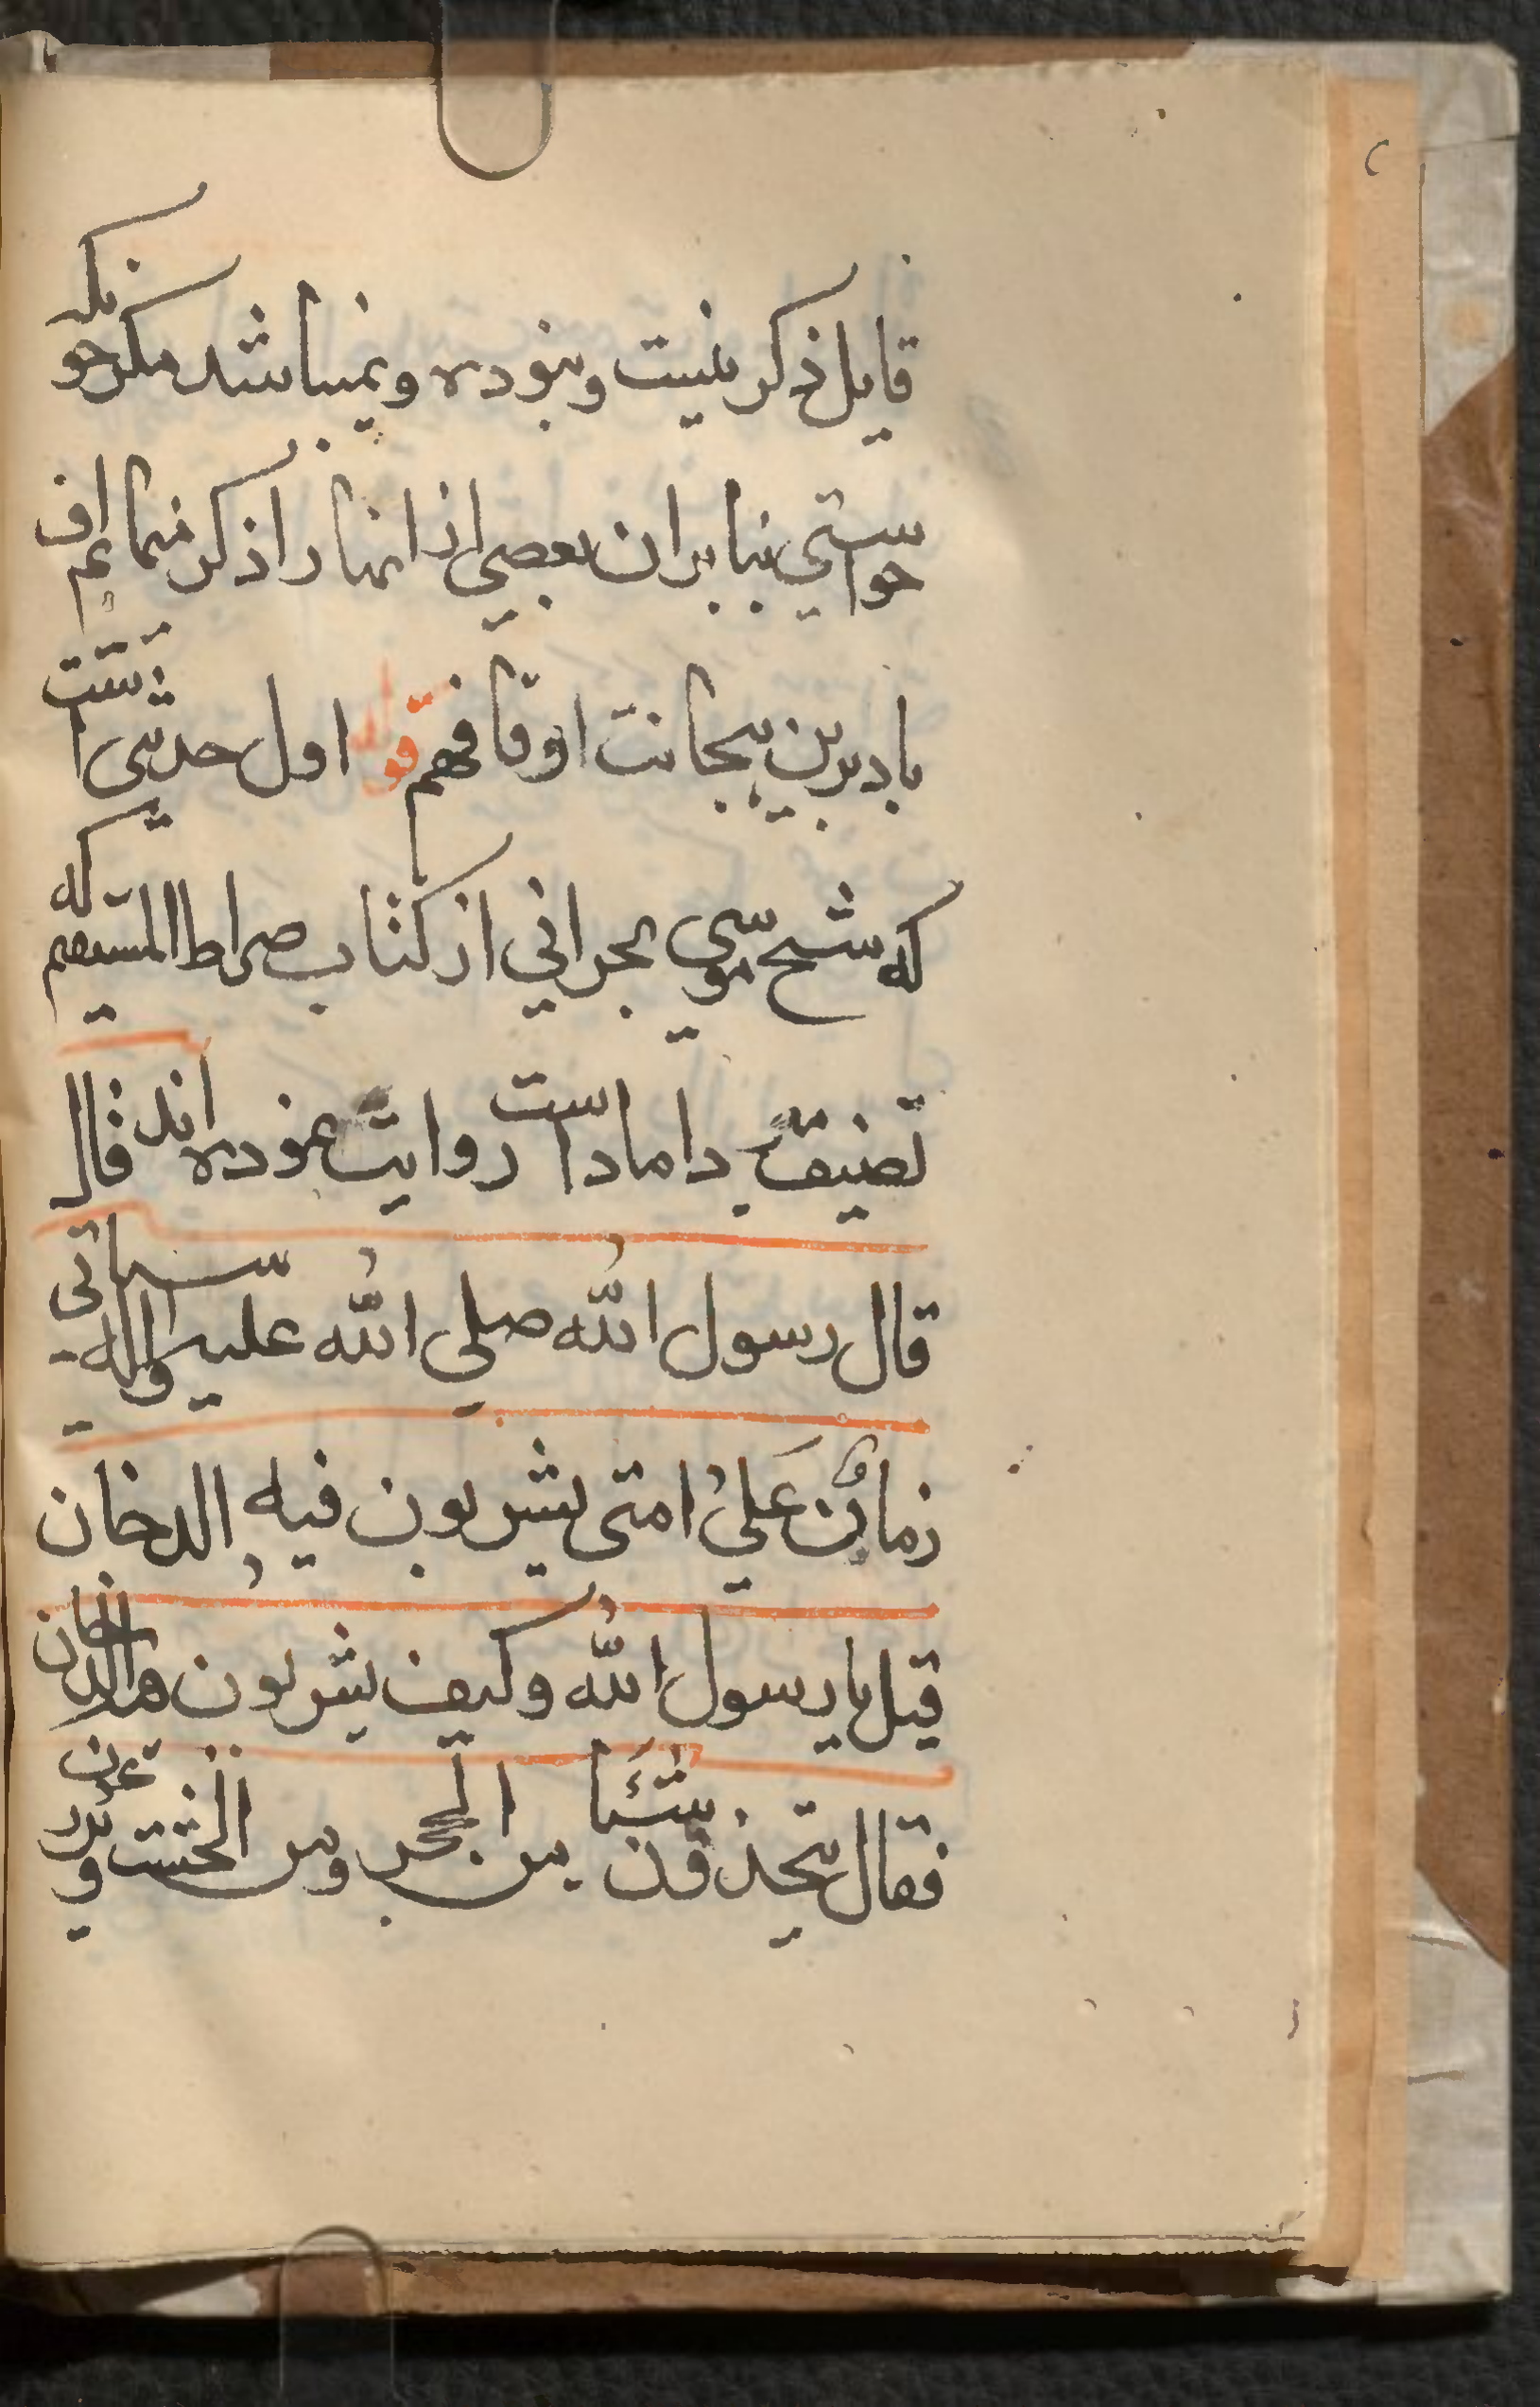 قابل ذکر نیست و نبوده و نمیباشد مکر حو مکر
حواستی بنا بران بعضی از انها را ذکر نمائم اف
باد برین بیجانت اوقافهم قوله اول حدیثی است
که شیخ موسی بحرانی از کتاب صراط المستقیم که
تصنیف داماد است روایت نموده اند قال
قال رسول الله صلی الله علیه واله سیاتی
زمان علی امتی یشربون فیه الدخان
قیل یا رسول الله وکیف یشربون الدخان
فقال یتخذون شیئا من الحجر ومن الخشب و